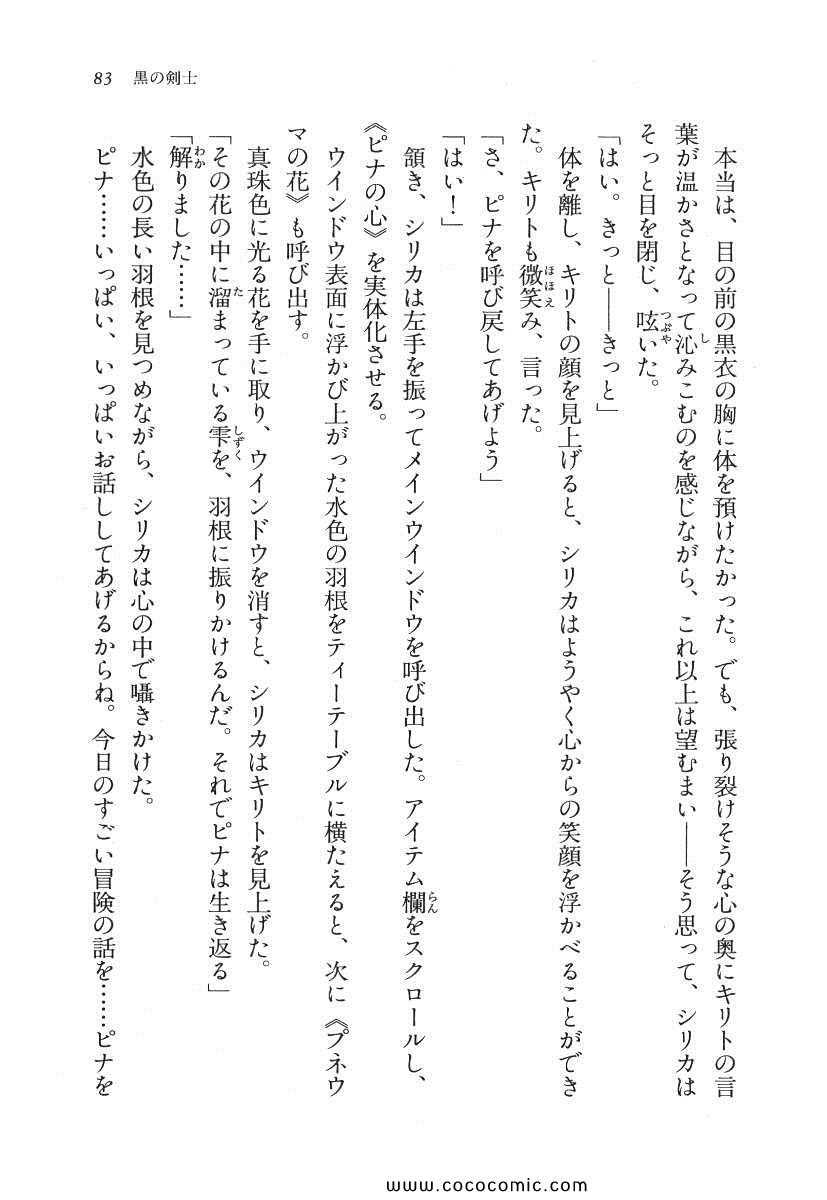 83　黒の剣士
　本当は、目の前の黒衣の胸に体を預けたかった。でも、張り裂けそうな心の奥にキリトの言
葉が温かさとなって沁みこむのを感じながら、これ以上は望むまい――そう思って、シリカは
そっと目を閉じ、呟いた。
「はい。きっと――きっと」
　体を離し、キリトの顔を見上げると、シリカはようやく心からの笑顔を浮かべることができ
た。キリトも微笑み、言った。
「さ、ピナを呼び戻してあげよう」
「はい！」
　頷き、シリカは左手を振ってメインウインドウを呼び出した。アイテム欄をスクロールし、
《ピナの心》を実体化させる。
　ウインドウ表面に浮かび上がった水色の羽根をティーテーブルに横たえると、次に《プネウ
マの花》も呼び出す。
　真珠色に光る花を手に取り、ウインドウを消すと、シリカはキリトを見上げた。
「その花の中に溜まっている雫を、羽根に振りかけるんだ。それでピナは生き返る」
「解りました……」
　水色の長い羽根を見つめながら、シリカは心の中で囁きかけた。
　ピナ……いっぱい、いっぱいお話ししてあげるからね。今日のすごい冒険の話を……ピナを
www.cococomic.com